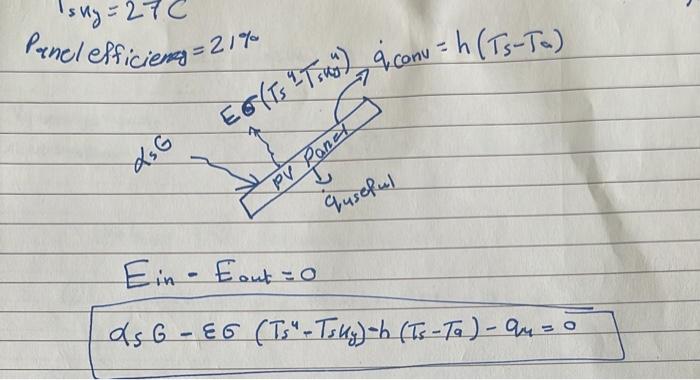 Tsky = 27 C
Panel efficiency = 21%
Eσ(Ts⁴-Tsky⁴)
q̇conv = h(Ts-Ta)
αsG
PV Panel
q̇useful
Ein - Eout = 0
αsG - εσ (Ts⁴-Tsky)-h (Ts-Ta) - qu = 0